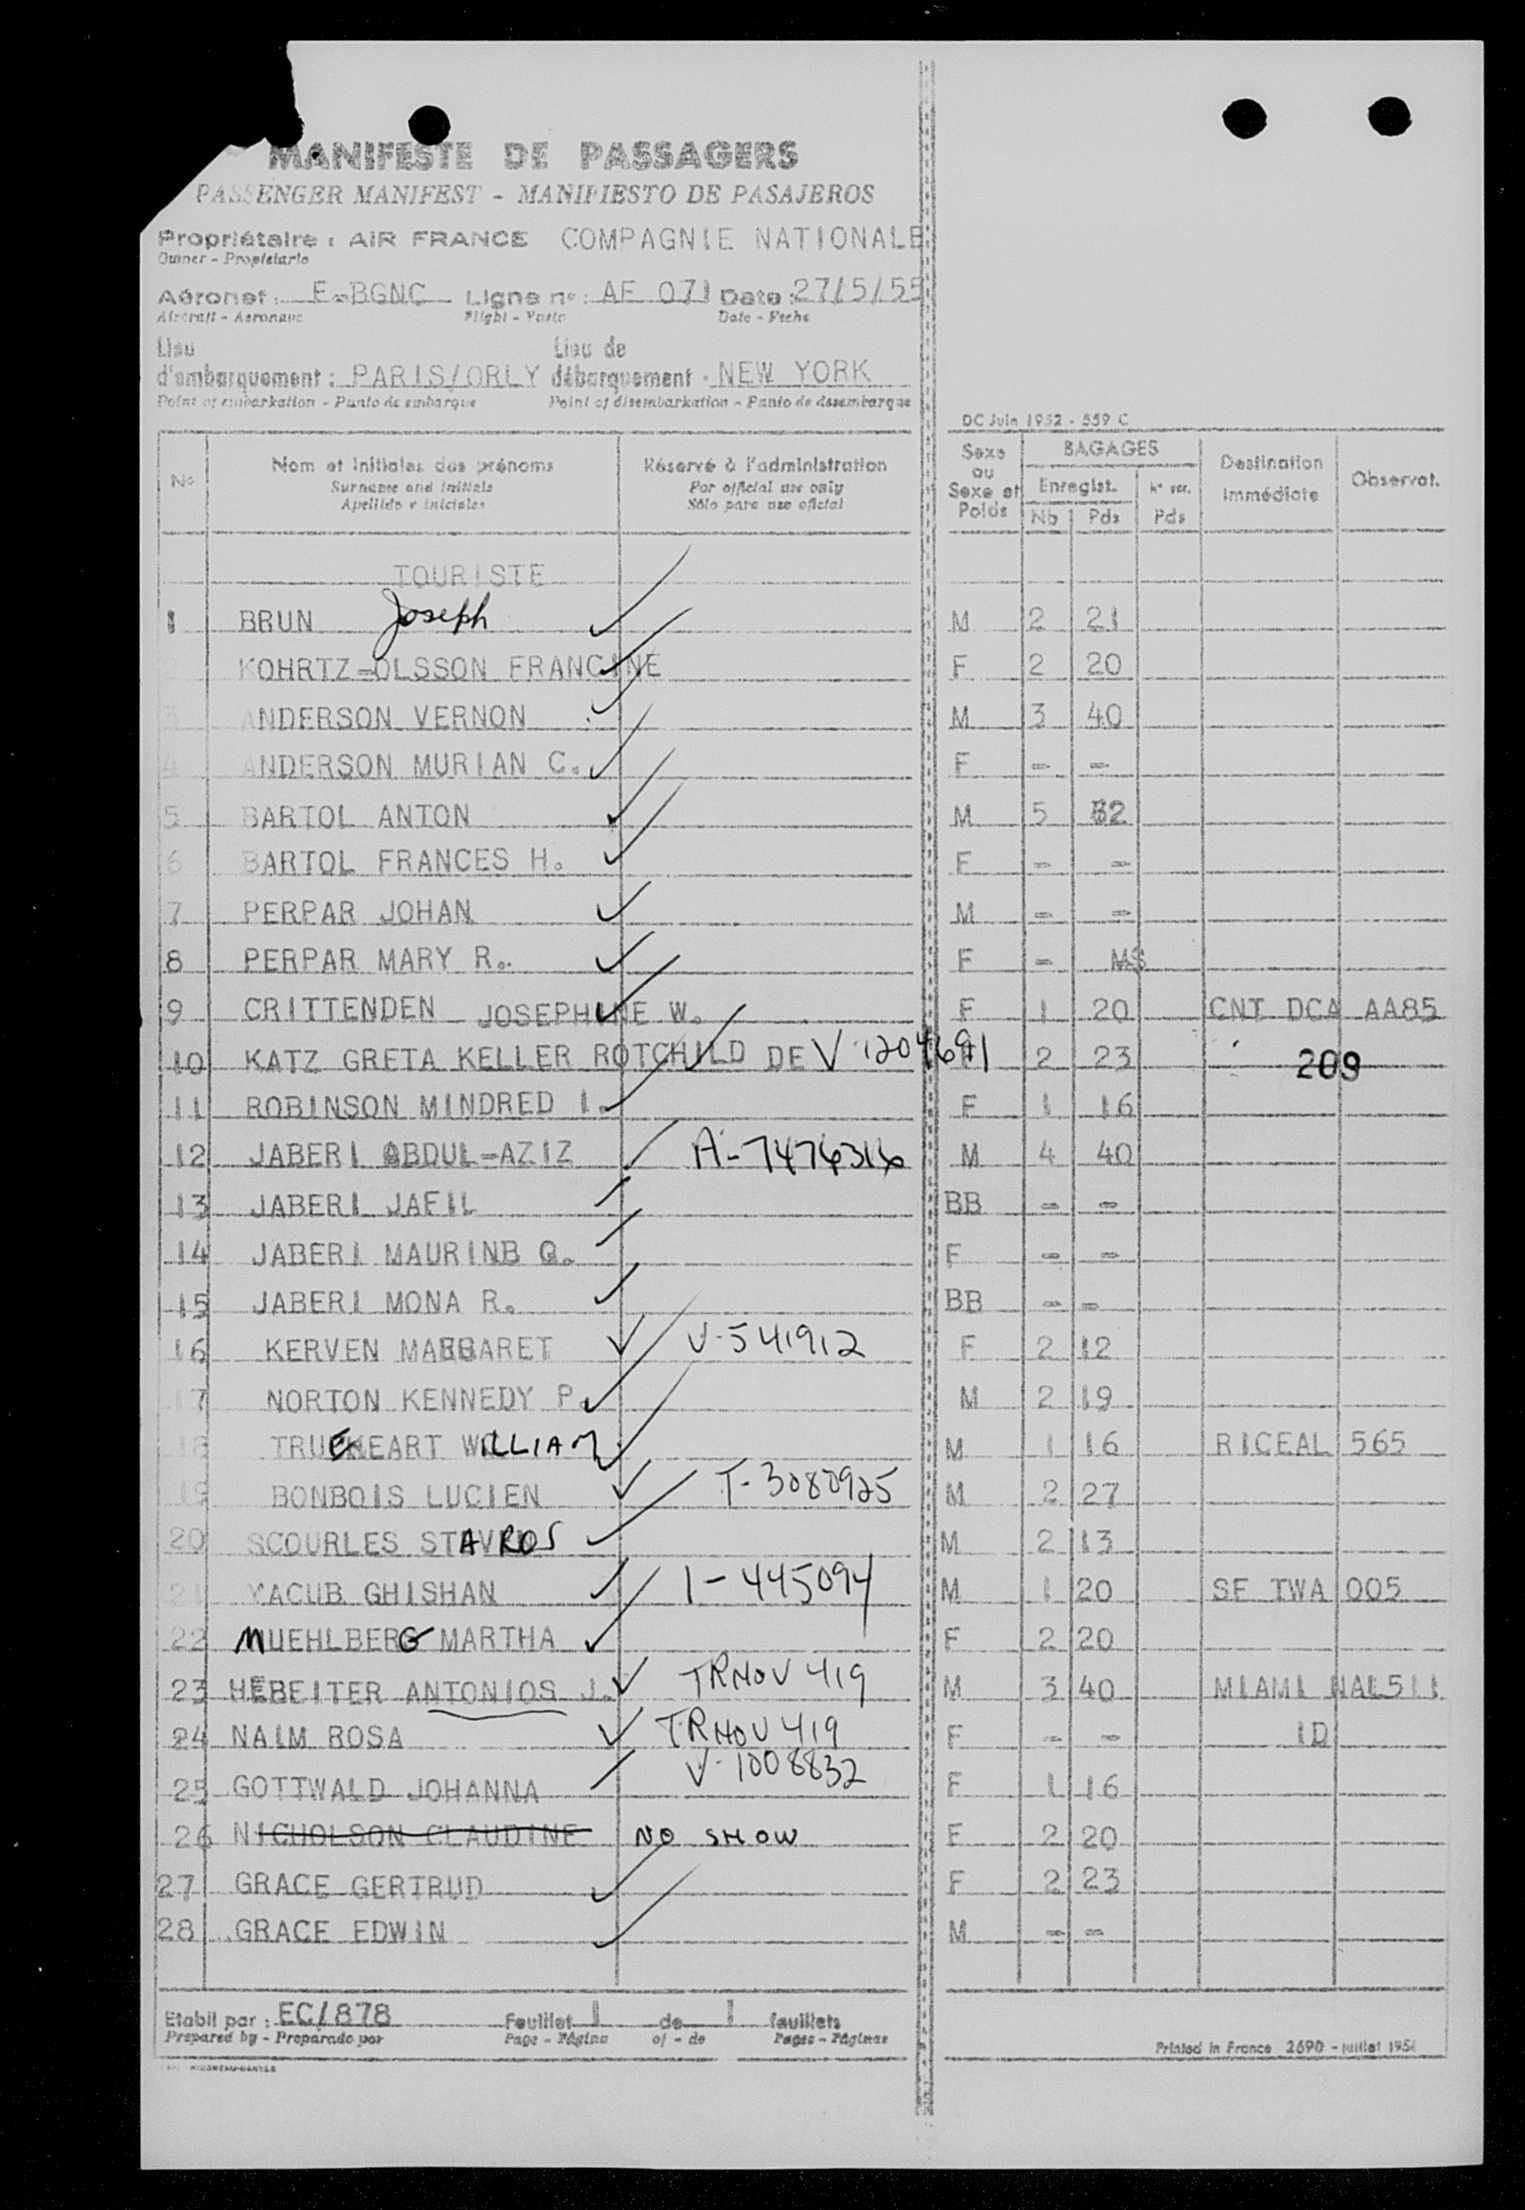 MANIFESTE DE PASSAGERS
PASSENGER MANIFEST - MANIFIESTO DE PASAJEROS
Propriétaire : AIR FRANCE COMPAGNIE NATIONALE
Owner - Propietario
Aéronef : F-BGNC Ligne n° : AF 071 Date : 27/5/55
Aircraft - Aeronave Flight - Vuelo Date - Fecha
Lieu Lieu de
d'embarquement : PARIS/ORLY débarquement . NEW YORK
Point of embarkation - Punto de embarque Point of disembarkation - Punto de desembarque
DC Juin 1952 - 559 C
N° Nom et initiales des prénoms Réservé à l'administration Sexe ou Sexe et Poids BAGAGES Destination immédiate Observat.
Surname and initials For official use only Enregist.
Apellido e iniciales Sólo para uso oficial Nb Pds Pds
TOURISTE
1 BRUN Joseph ✓ M 2 21
2 KOHRTZ-OLSSON FRANCINE ✓ F 2 20
3 ANDERSON VERNON ✓ M 3 40
4 ANDERSON MURIAN C. ✓ F - -
5 BARTOL ANTON ✓ M 5 82
6 BARTOL FRANCES H. ✓ F - -
7 PERPAR JOHAN ✓ M - -
8 PERPAR MARY R. ✓ F -
9 CRITTENDEN JOSEPHINE W. ✓ F 1 20 CNT DCA AA85
10 KATZ GRETA KELLER ROTCHILD DE ✓ V 1204691 2 23 209
11 ROBINSON MINDRED I. ✓ F 1 16
12 JABERI ABDUL-AZIZ ✓ A-7476316 M 4 40
13 JABERI JAFIL ✓ BB - -
14 JABERI MAURINB G. ✓ F - -
15 JABERI MONA R. ✓ BB - -
16 KERVEN MARGARET ✓ V-541912 F 2 12
17 NORTON KENNEDY P. ✓ M 2 19
18 TRUEHEART WILLIAM ✓ M 1 16 RICEAL 565
19 BONBOIS LUCIEN ✓ T-3080925 M 2 27
20 SCOURLES STAVROS ✓ M 2 13
21 YACUB GHISHAN ✓ I-445094 M 1 20 SF TWA 005
22 MUEHLBERG MARTHA ✓ F 2 20
23 HEBEITER ANTONIOS J. ✓ TRNOV 419 M 3 40 MIAMI NAL511
24 NAIM ROSA ✓ TRNOV 419 F - - ID
25 GOTTWALD JOHANNA ✓ V-1008832 F 1 16
26 NICHOLSON CLAUDINE NO SHOW F 2 20
27 GRACE GERTRUD ✓ F 2 23
28 GRACE EDWIN ✓ M - -
Etabli par : EC/878 Feuillet 1 de 1 feuillets
Prepared by - Preparado por Page - Página of - de Pages - Páginas
Printed in France 2690 - juillet 1954